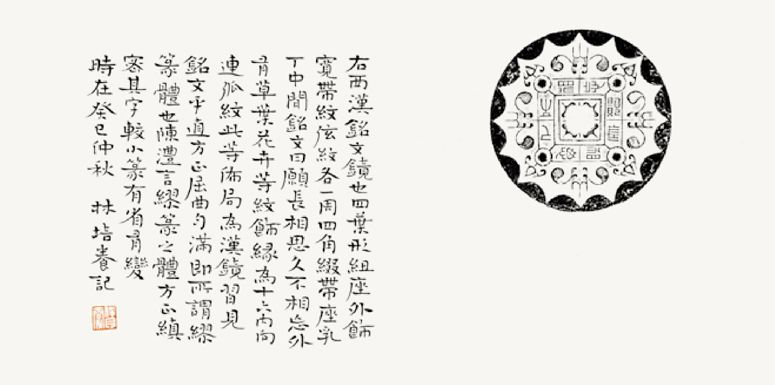 右西漢銘文鏡也四葉形組座外飾
寬帶紋弦紋各一周四角綴帶座乳
丁中間銘文曰願長相思久不相忘外
有草葉花卉等紋飾緣為十六內向
連弧紋此等佈局為漢鏡習見
銘文平直方正屈曲勻滿即所謂繆
篆體也陳澧言繆篆之體方正縝
密其字較小篆有省有變
時在癸巳仲秋 林培養記